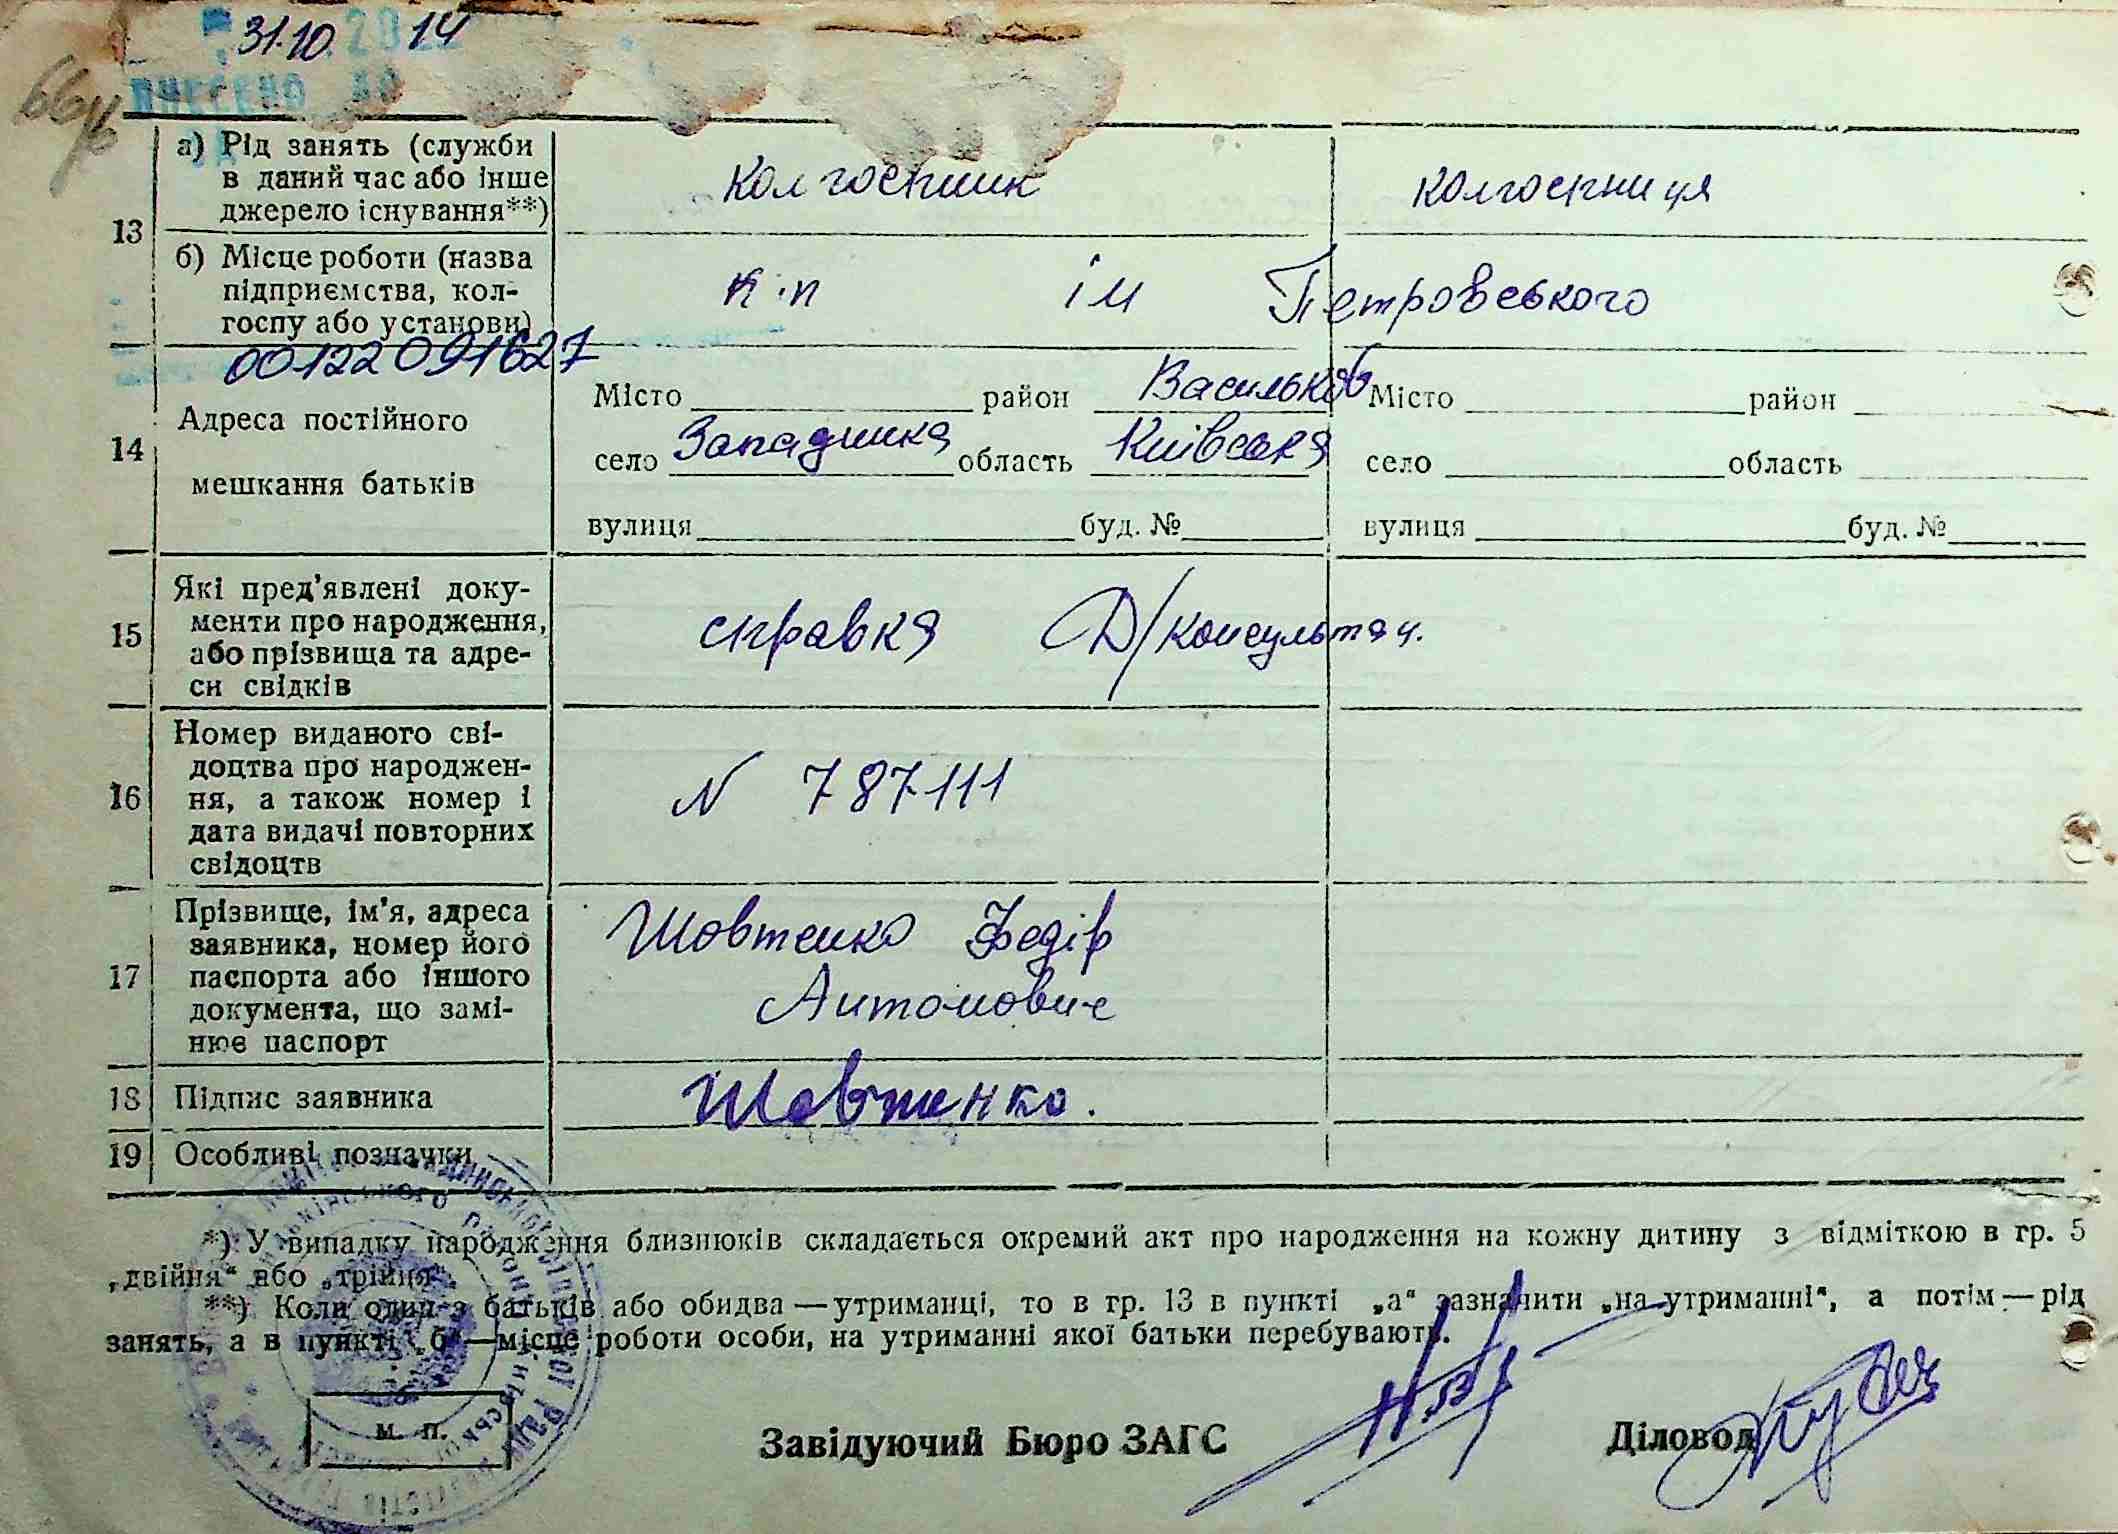 31.10. 2014
ВНЕСЕНО ДО
13
а) Рід занять (служби
в даний час або інше
джерело існування**)
колгоспник
колгоспниця
б) Місце роботи (назва
підприємства, кол-
госпу або установи)
к-п ім Петровського
00122091627
14
Адреса постійного
мешкання батьків
Місто район Васильков
село Западинка область Київська
вулиця буд. №
Місто район
село область
вулиця буд. №
15
Які пред'явлені доку-
менти про народження,
або прізвища та адре-
си свідків
справка Д/консультац.
16
Номер виданого сві-
доцтва про народжен-
ня, а також номер і
дата видачі повторних
свідоцтв
N 787111
17
Прізвище, ім'я, адреса
заявника, номер його
паспорта або іншого
документа, що замі-
нює паспорт
Шовтенко Федір
Антонович
18
Підпис заявника
Шовтенко.
19
Особливі позначки
*) У випадку народження близнюків складається окремий акт про народження на кожну дитину з відміткою в гр. 5
„двійня“ або „трійня“.
**) Коли один з батьків або обидва — утриманці, то в гр. 13 в пункті „а“ зазначити „на утриманні“, а потім — рід
занять, а в пункті „б“ — місце роботи особи, на утриманні якої батьки перебувають.
м. п.
Завідуючий Бюро ЗАГС
Діловод